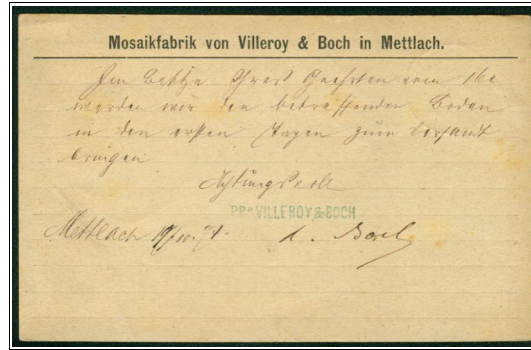 Mosaikfabrik von Villeroy & Boch in Mettlach.
Im Besitze Ihres Geehrten vom
werden wir den betreffenden Boden
in den ersten Tagen zum Versandt
bringen
Achtungsvoll
PPa VILLEROY & BOCH
Mettlach